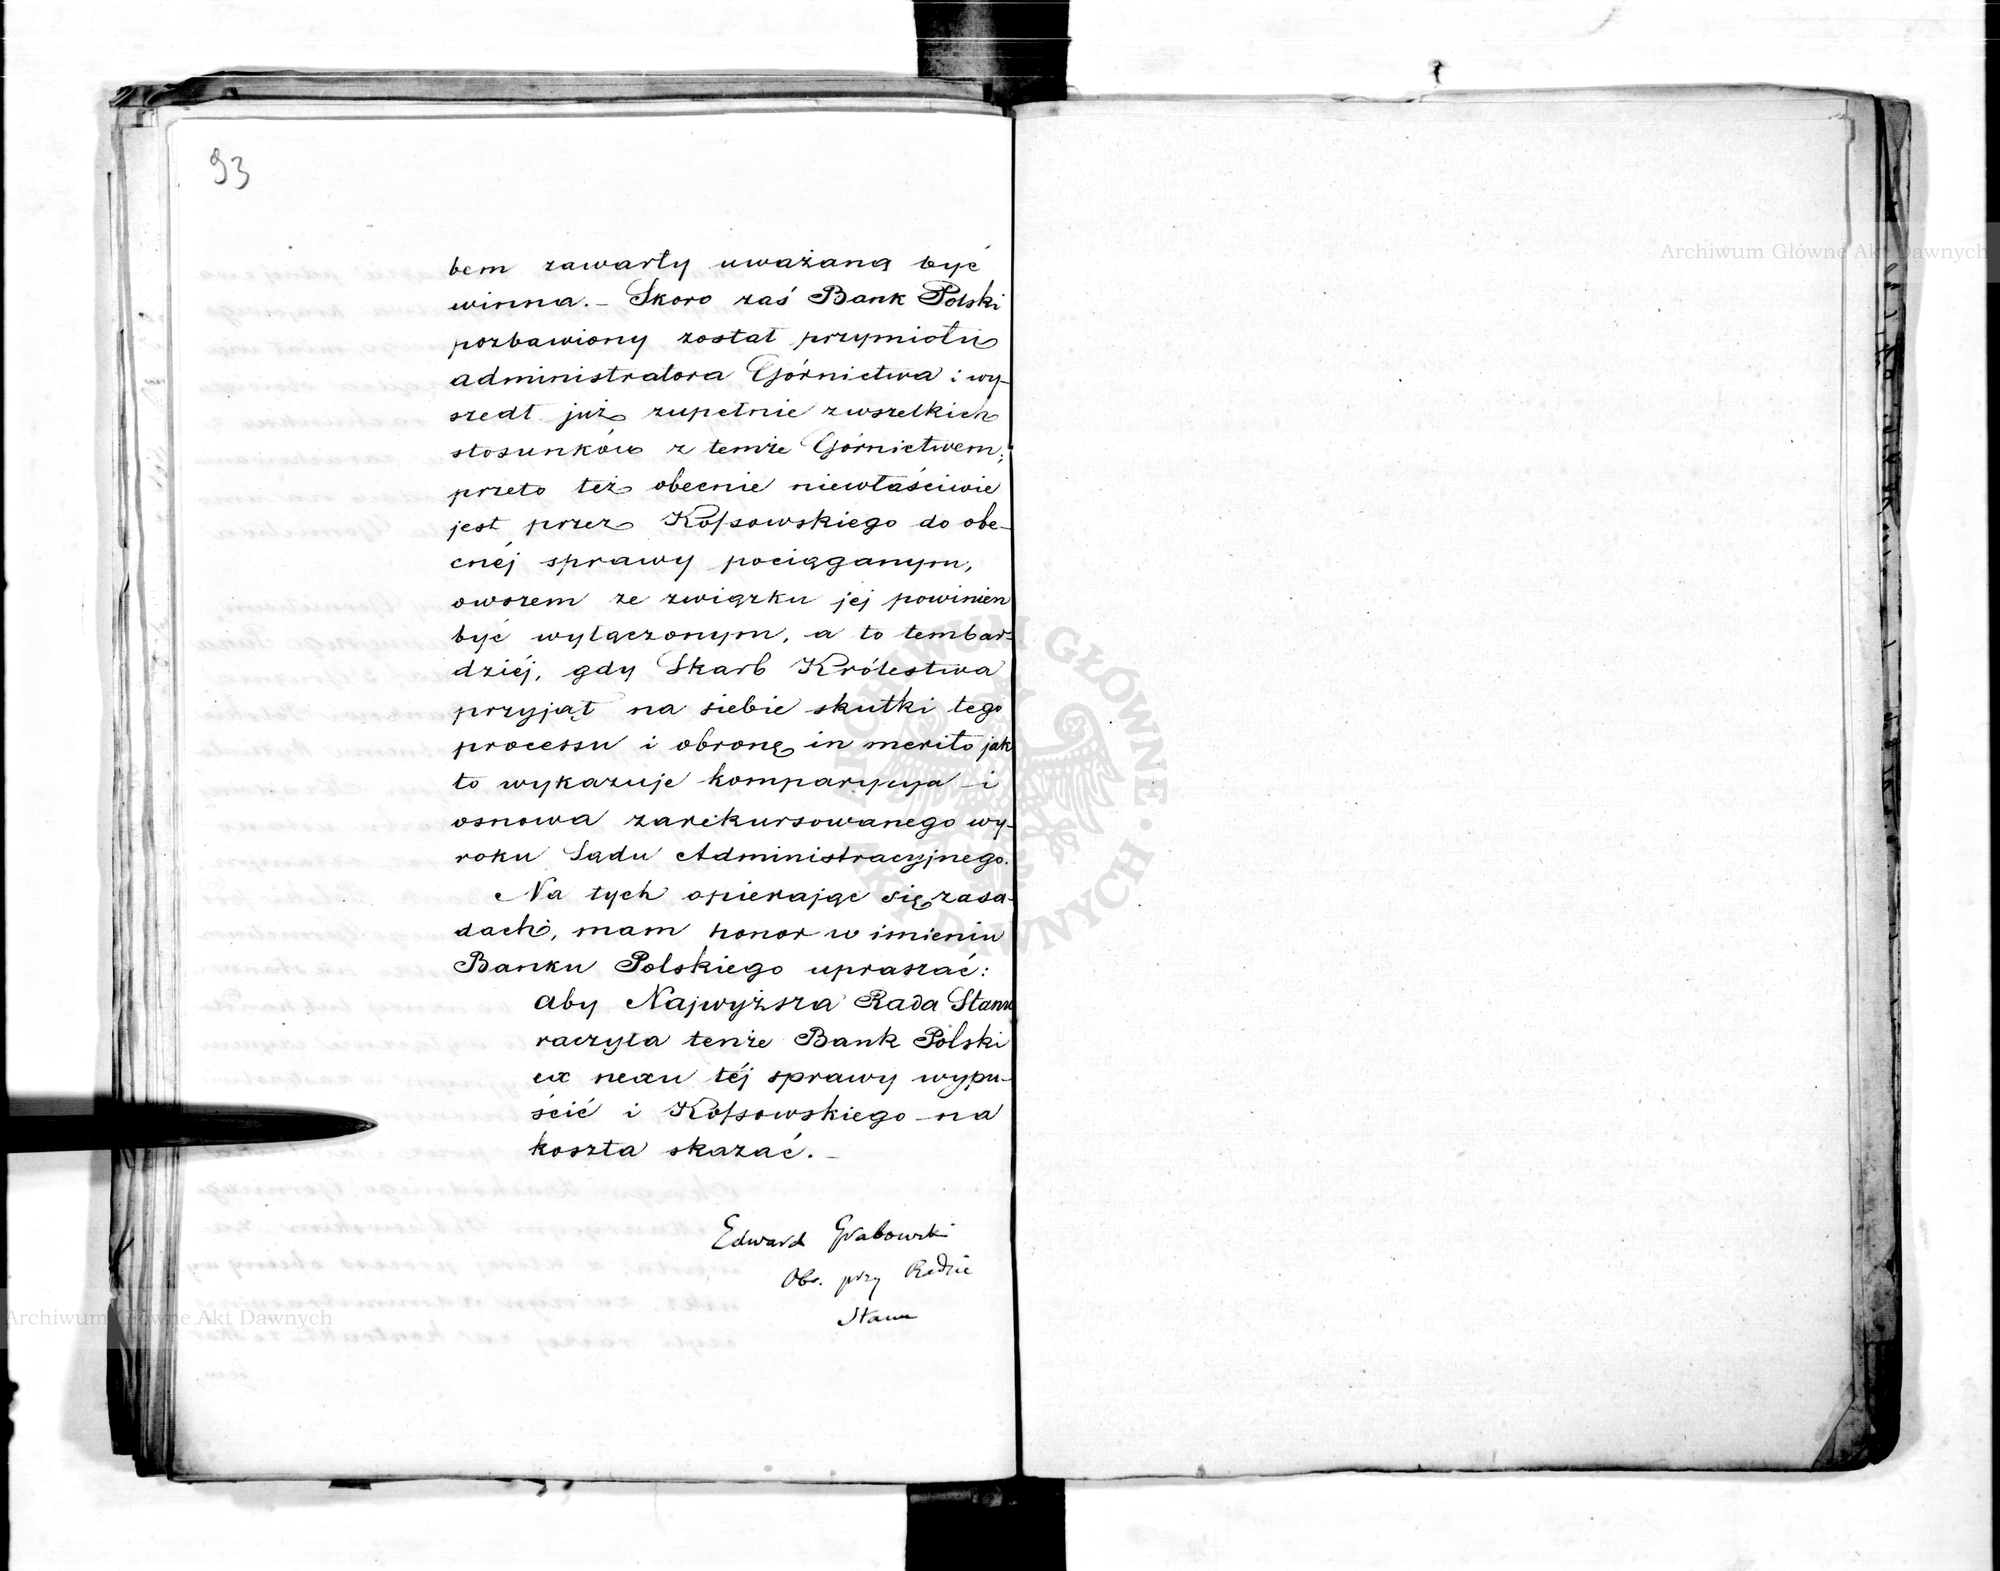 93
bem zawarty uważaną być
winna. – Skoro zaś Bank Polski
pozbawiony został przymiotu
administratora Górnictwa i wy-
szedł już zupełnie z wszelkich
stosunków z temże Górnictwem;
przeto też obecnie niewłaściwie
jest przez Kossowskiego do obe-
cnéj sprawy pociąganym,
owszem ze związku jej powinien
być wyłączonym, a to tembar-
dziéj, gdy Skarb Królestwa
przyjął na siebie skutki tego
processu i obronę in merito jak
to wykazuje komparycya i
osnowa zarekursowanego wy-
roku Sądu Administracyjnego.
Na tych opierając się zasa-
dach, mam honor w imieniu
Banku Polskiego upraszać:
aby Najwyższa Rada Stanu
raczyła tenże Bank Polski
ex nexu téj sprawy wypu-
ścić i Kossowskiego na
koszta skazać. –
Edward Grabowski
Obr. przy Radzie
Stanu
Archiwum Główne Akt Dawnych
Archiwum Główne Akt Dawnych
ARCHIWUM GŁÓWNE AKT DAWNYCH